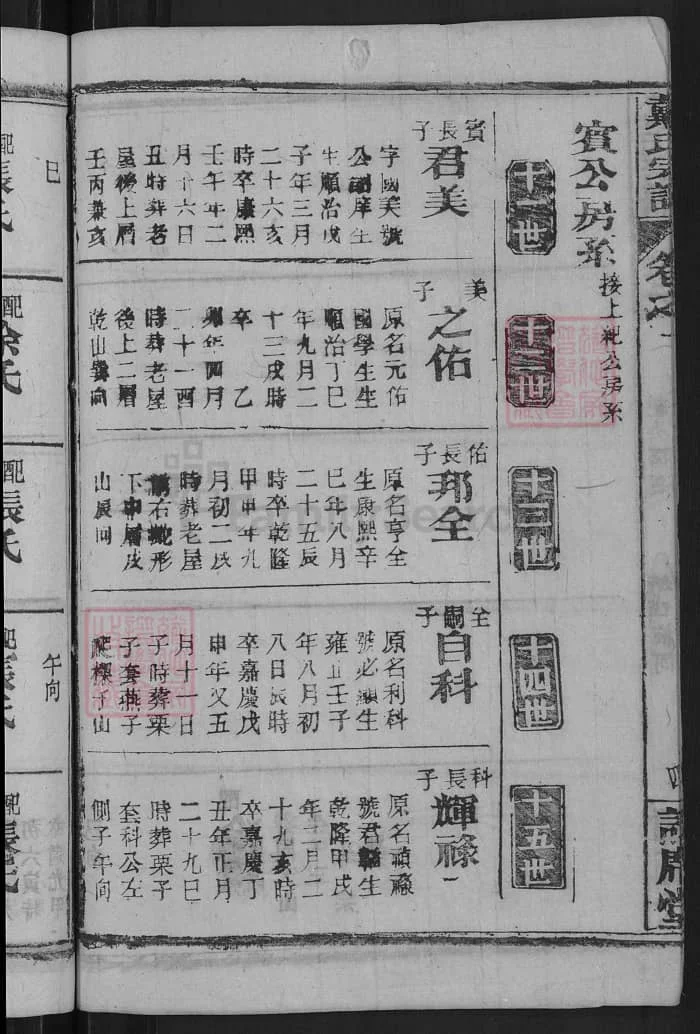 戴氏宗譜
卷之一
四
賓公房系 接上純公房系
十一世
十二世
十三世
十四世
十五世
賓長子
君美
字國美號
公謝庠生
生順治戊
子年三月
二十六亥
時卒康熙
壬午年二
月十六日
丑時葬老
屋後上層
壬丙兼亥
巳
美子
之佑
原名元佑
國學生生
順治丁巳
年九月二
十三戌時
卒 乙
卯年四月
二十一酉
時葬老屋
後上二層
乾山巽向
佑長子
邦全
原名亨全
生康熙辛
巳年八月
二十五辰
時卒乾隆
甲申年九
月初二戌
時葬老屋
右形
下中層戌
山辰向
全嗣子
自科
原名利科
號必顯生
雍正壬子
年八月初
八日辰時
卒嘉慶戊
申年又五
月十一日
子時葬栗
子套燕子
子山
午向
科長子
輝祿
原名禎祿
號君生
乾隆甲戌
年二月二
十九亥時
卒嘉慶丁
丑年正月
二十九巳
時葬栗子
套科公左
側子午向
配張氏
配徐氏
配張氏
配張氏
配張氏